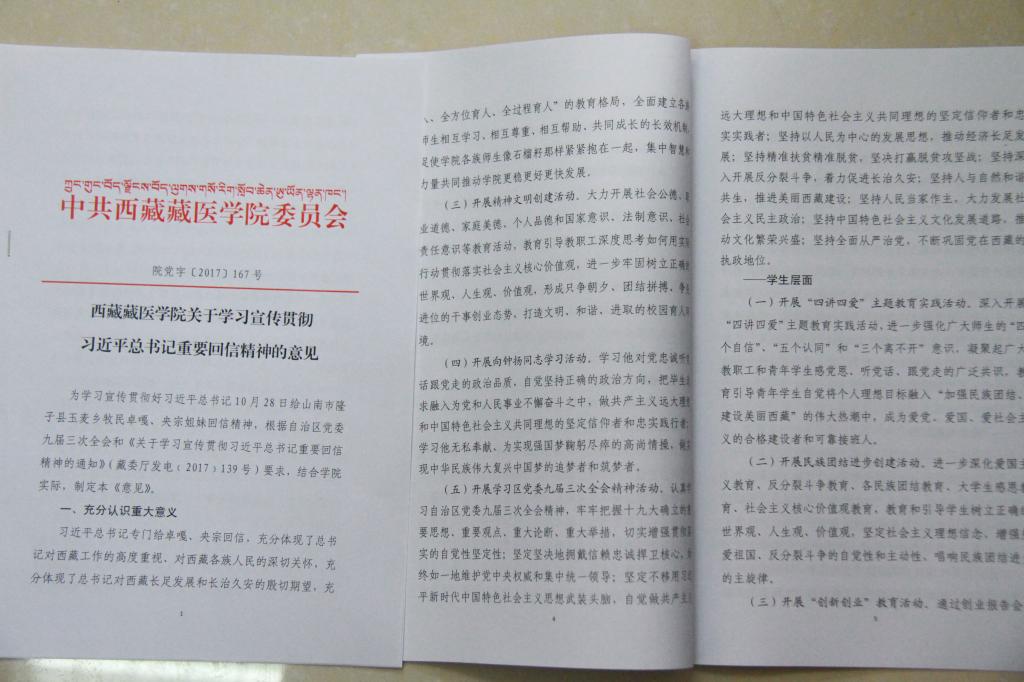 ཀྲུང་གུང་བོད་ལྗོངས་བོད་ལུགས་གསོ་རིག་སློབ་ཆེན་ཨུ་ཡོན་ལྷན་ཁང་།
中共西藏藏医学院委员会
院党字〔2017〕167 号
西藏藏医学院关于学习宣传贯彻
习近平总书记重要回信精神的意见
为学习宣传贯彻好习近平总书记 10 月 28 日给山南市隆
子县玉麦乡牧民卓嘎、央宗姐妹回信精神，根据自治区党委
九届三次全会和《关于学习宣传贯彻习近平总书记重要回信
精神的通知》（藏委厅发电﹝2017﹞139 号）要求，结合学院
实际，制定本《意见》。
一、充分认识重大意义
习近平总书记专门给卓嘎、央宗回信，充分体现了总书
记对西藏工作的高度重视、对西藏各族人民的深切关怀，充
分体现了总书记对西藏长足发展和长治久安的殷切期望，充
1
、全方位育人、全过程育人”的教育格局，全面建立各族
师生相互学习、相互尊重、相互帮助、共同成长的长效机制，
促使学院各族师生像石榴籽那样紧紧抱在一起，集中智慧和
力量共同推动学院更稳更好更快发展。
（三）开展精神文明创建活动。大力开展社会公德、职
业道德、家庭美德、个人品德和国家意识、法制意识、社会
责任意识等教育活动，教育引导教职工深度思考如何用实际
行动贯彻落实社会主义核心价值观，进一步牢固树立正确的
世界观、人生观、价值观，形成只争朝夕、团结拼搏、争先
进位的干事创业态势，打造文明、和谐、进取的校园育人环
境。
（四）开展向钟扬同志学习活动。学习他对党忠诚听党
话跟党走的政治品质，自觉坚持正确的政治方向，把毕生追
求融入为党和人民事业不懈奋斗之中，做共产主义远大理想
和中国特色社会主义共同理想的坚定信仰者和忠实践行者；
学习他无私奉献、为实现强国梦鞠躬尽瘁的高尚情操，做实
现中华民族伟大复兴中国梦的追梦者和筑梦者。
（五）开展学习区党委九届三次全会精神活动。认真学
习自治区党委九届三次全会精神，牢牢把握十九大确立的重
要思想、重要观点、重大论断、重大举措，切实增强贯彻落
实的自觉性坚定性；坚定坚决地拥戴信赖忠诚捍卫核心，始
终如一地维护党中央权威和集中统一领导；坚定不移用习近
平新时代中国特色社会主义思想武装头脑，自觉做共产主义
4
远大理想和中国特色社会主义共同理想的坚定信仰者和忠
实实践者；坚持以人民为中心的发展思想，推动经济长足发
展；坚持精准扶贫精准脱贫，坚决打赢脱贫攻坚战；坚持深
入开展反分裂斗争，着力促进长治久安；坚持人与自然和谐
共生，推进美丽西藏建设；坚持人民当家作主，大力发展社
会主义民主政治；坚持中国特色社会主义文化发展道路，推
动文化繁荣兴盛；坚持全面从严治党，不断巩固党在西藏的
执政地位。
——学生层面
（一）开展“四讲四爱”主题教育实践活动。深入开展
“四讲四爱”主题教育实践活动，进一步强化广大师生的“四
个自信”、“五个认同”和“三个离不开”意识，凝聚起广大
教职工和青年学生感党恩、听党话、跟党走的广泛共识。教
育引导青年学生自觉将个人理想目标融入“加强民族团结、
建设美丽西藏”的伟大热潮中，成为爱党、爱国、爱社会主
义的合格建设者和可靠接班人。
（二）开展民族团结进步创建活动。进一步深化爱国主
义教育、反分裂斗争教育、各民族团结教育、大学生感恩教
育、社会主义核心价值观教育，教育和引导学生树立正确的
世界观、人生观、价值观，坚定社会主义理想信念，增强热
爱祖国、反分裂斗争的自觉性和主动性、唱响民族团结进步
的主旋律。
（三）开展“创新创业”教育活动。通过创业报告会
5